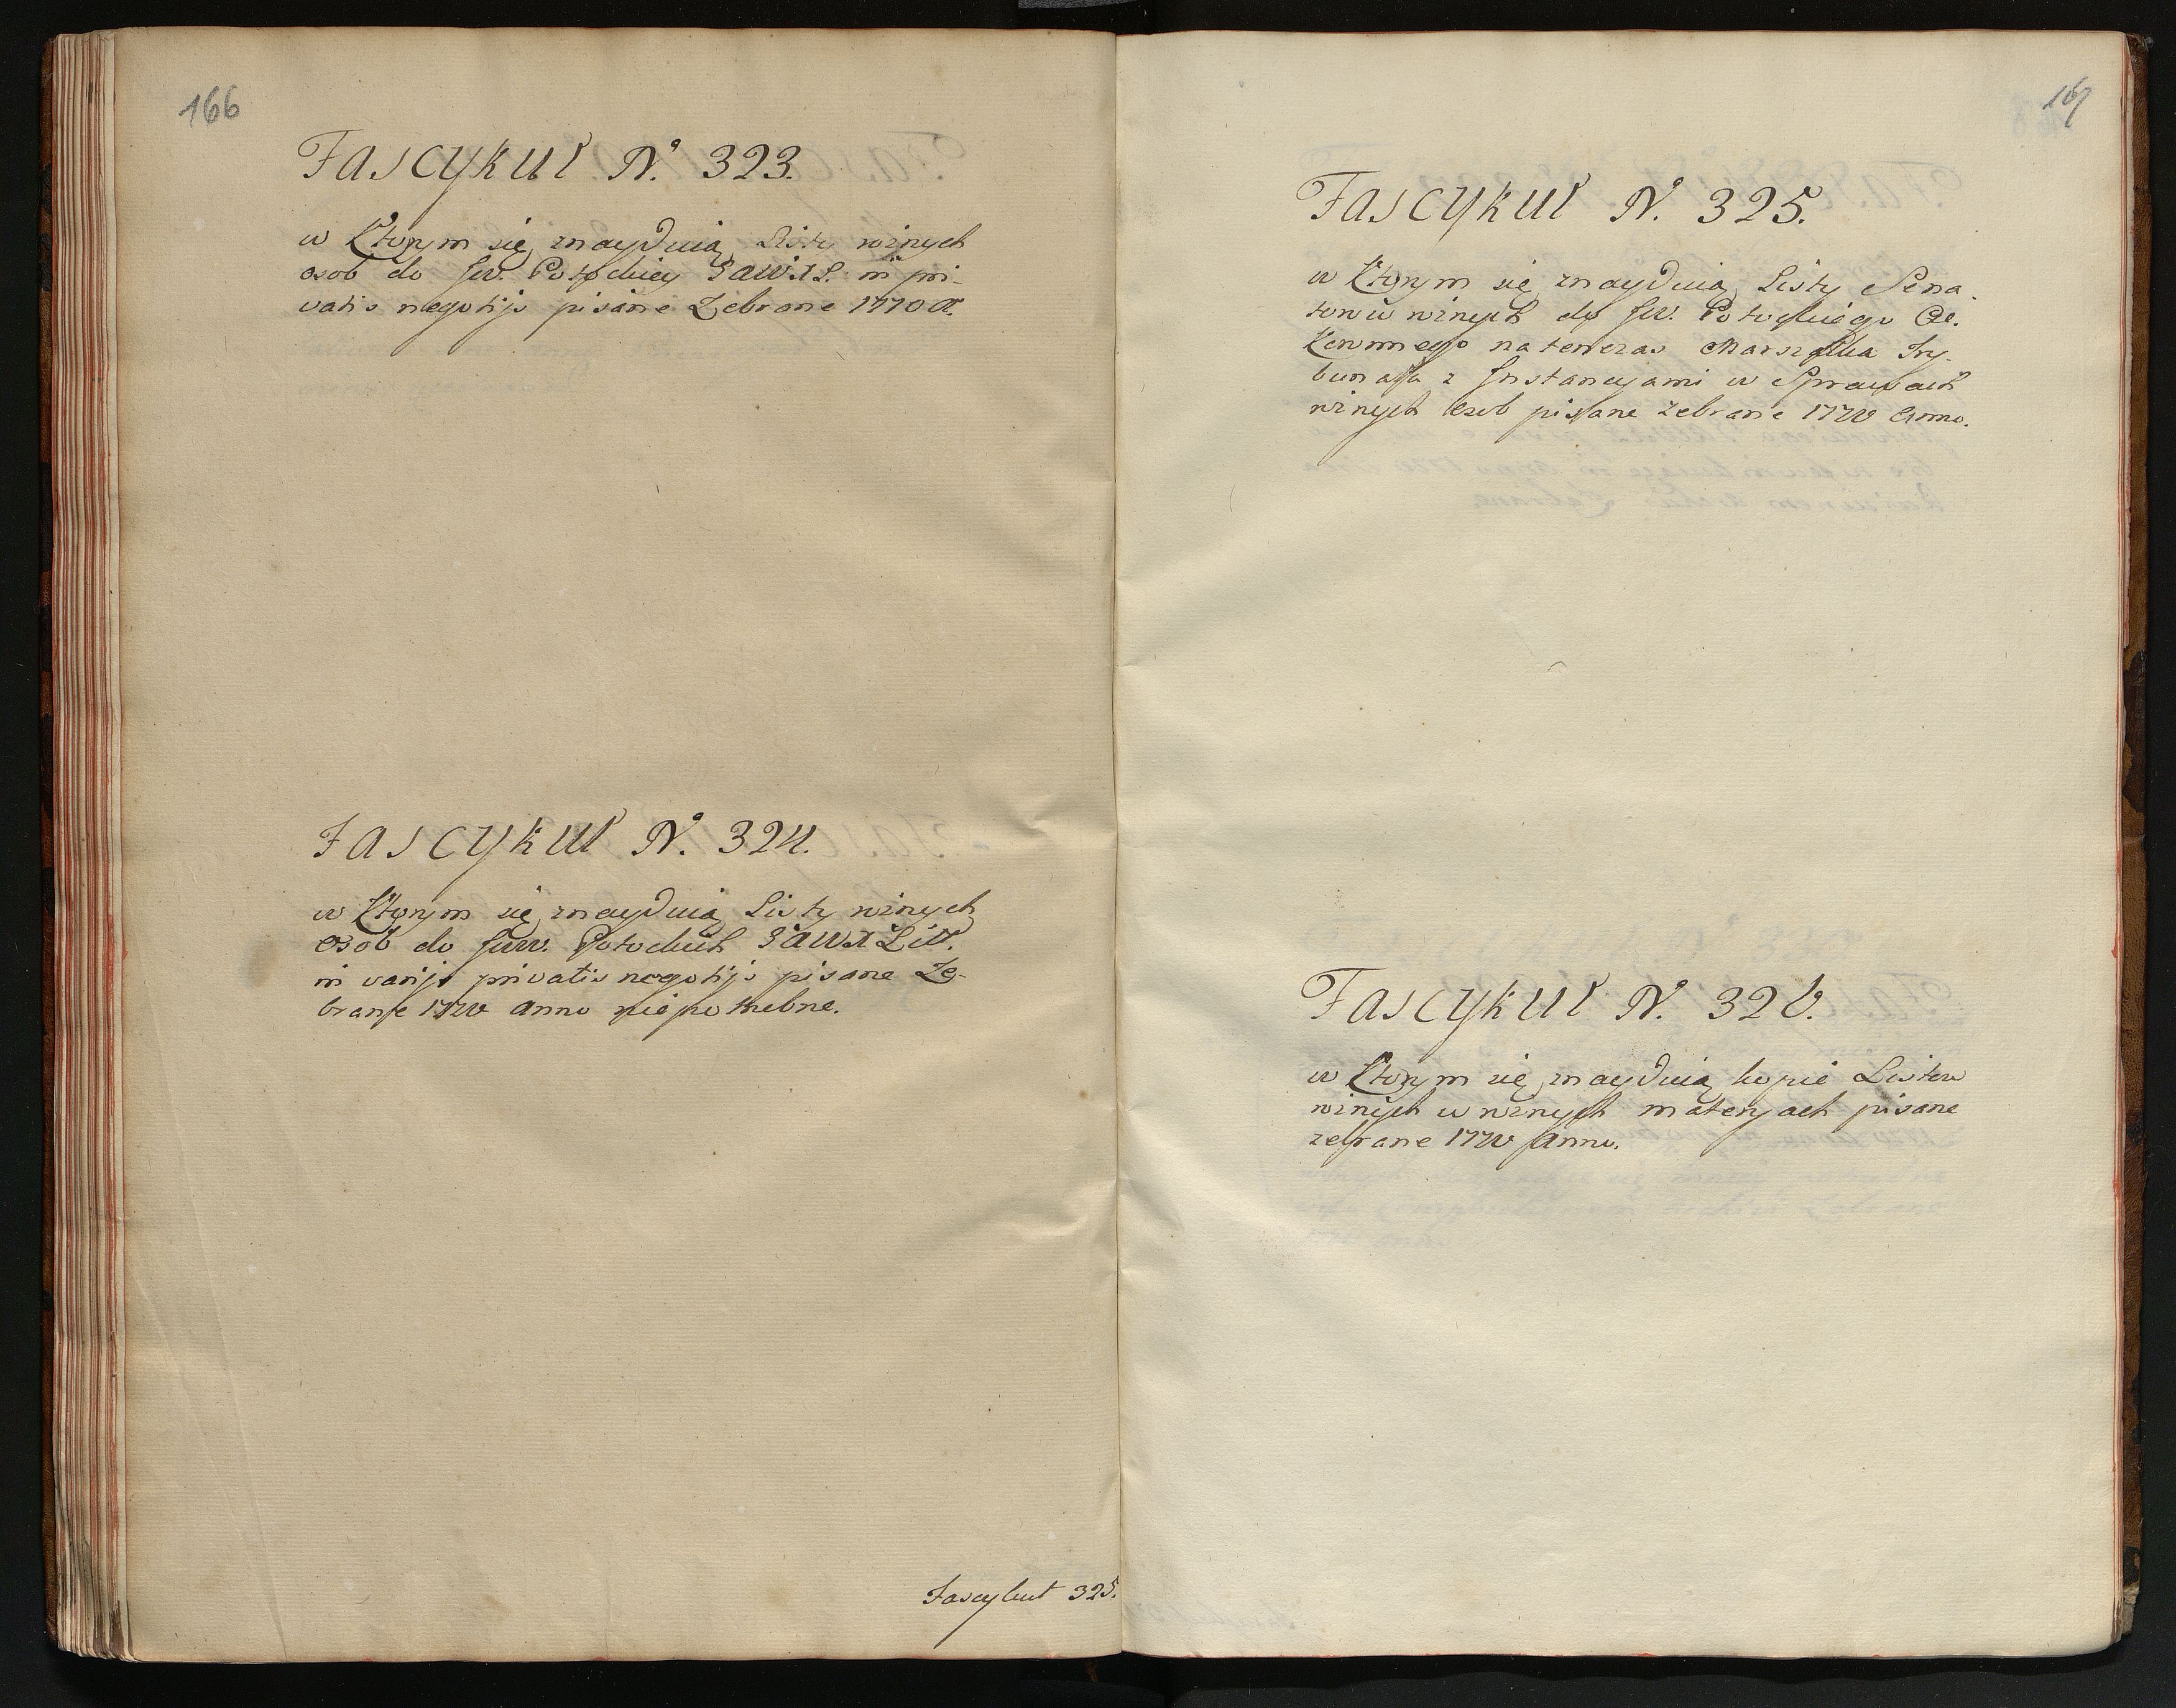 166
Fascykuł N.º 323.
w Ktorym się znayduią Listy roznych
osob do Jw. Potockiey in pri-
vatis negotijs pisane Zebrane 1770 A.
Fascykuł N.º 324.
w Ktorym się znayduią Listy roznych
osob do Jww. Potockich
in varijs privatis negotijs pisane Ze-
brane 1770 Anno niepotrzebne.
Fascykuł 325.
167
Fascykuł N.º 325.
w Ktorym się znayduią Listy Sena-
torow roznych do Jw. Potockiego
Koronnego natenczas Marszałka Try-
bunału z Instancyami w Sprawach
roznych Osob pisane zebrane 1770 Anno.
Fascykuł N.º 326.
w Ktorym się znayduią kopie Listow
roznych w roznych materyach pisane
zebrane 1770 Anno.